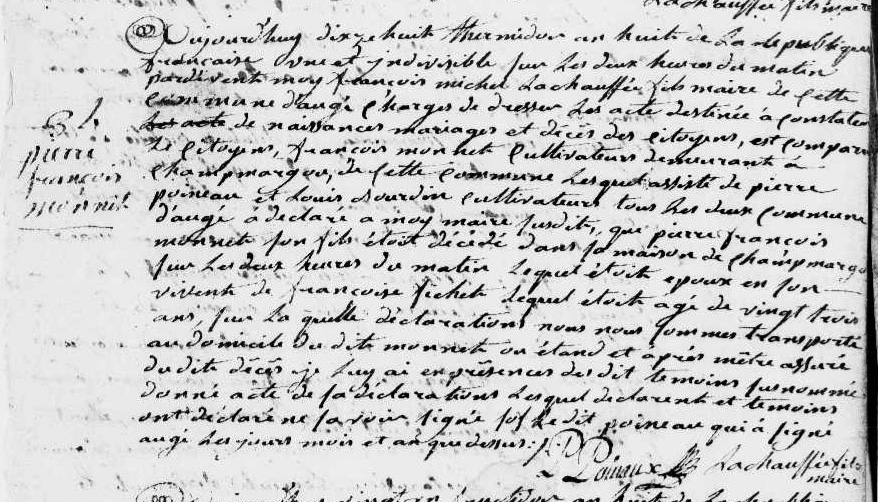 Lachauffée fils maire
Aujourdhuy dix ze huit thermidor an huit de La republique
francaise une et jndivisible sur Les deux heures du matin
pardivent moy françois michel Lachauffée fils maire de Cette
Commune d'augé Charges de dresser Les acte destinée à Constater
Les acte de naissances mariages et décès des Citoyens, est Comparu
Le Citoyens, françois monnet Cultivateurs demeurant à
Champmargou, de Cette Commune Lesquel assisté de pierre
poineau et Louis Sourdin Cultivateurs tous Les deux Commune
d'augé à declaré a moy maire susdits, que pierre françois
monnet son fils étoit décédé dans sa maison de Champmargo
sur Les deux heures du matin Lequel étoit epoux en son
vivent de françoise fichet Lequel étoit agé de vingt trois
ans, sur La quelle déclarations nous nous sommes transporté
au domicile du dite monnet ou étand et après mêtre assuré
du dite décès je Luy ai en présences des dit temoins susnommée
donné acte de sa déclarations Lesquel déclarent et temoins
ont déclaré ne savoir signé Led dit poineau qui à signé
augé Les jours mois et an que dessus
pierre
françois
monnet
Poinaux Lachauffée fils
maire
an huit de La